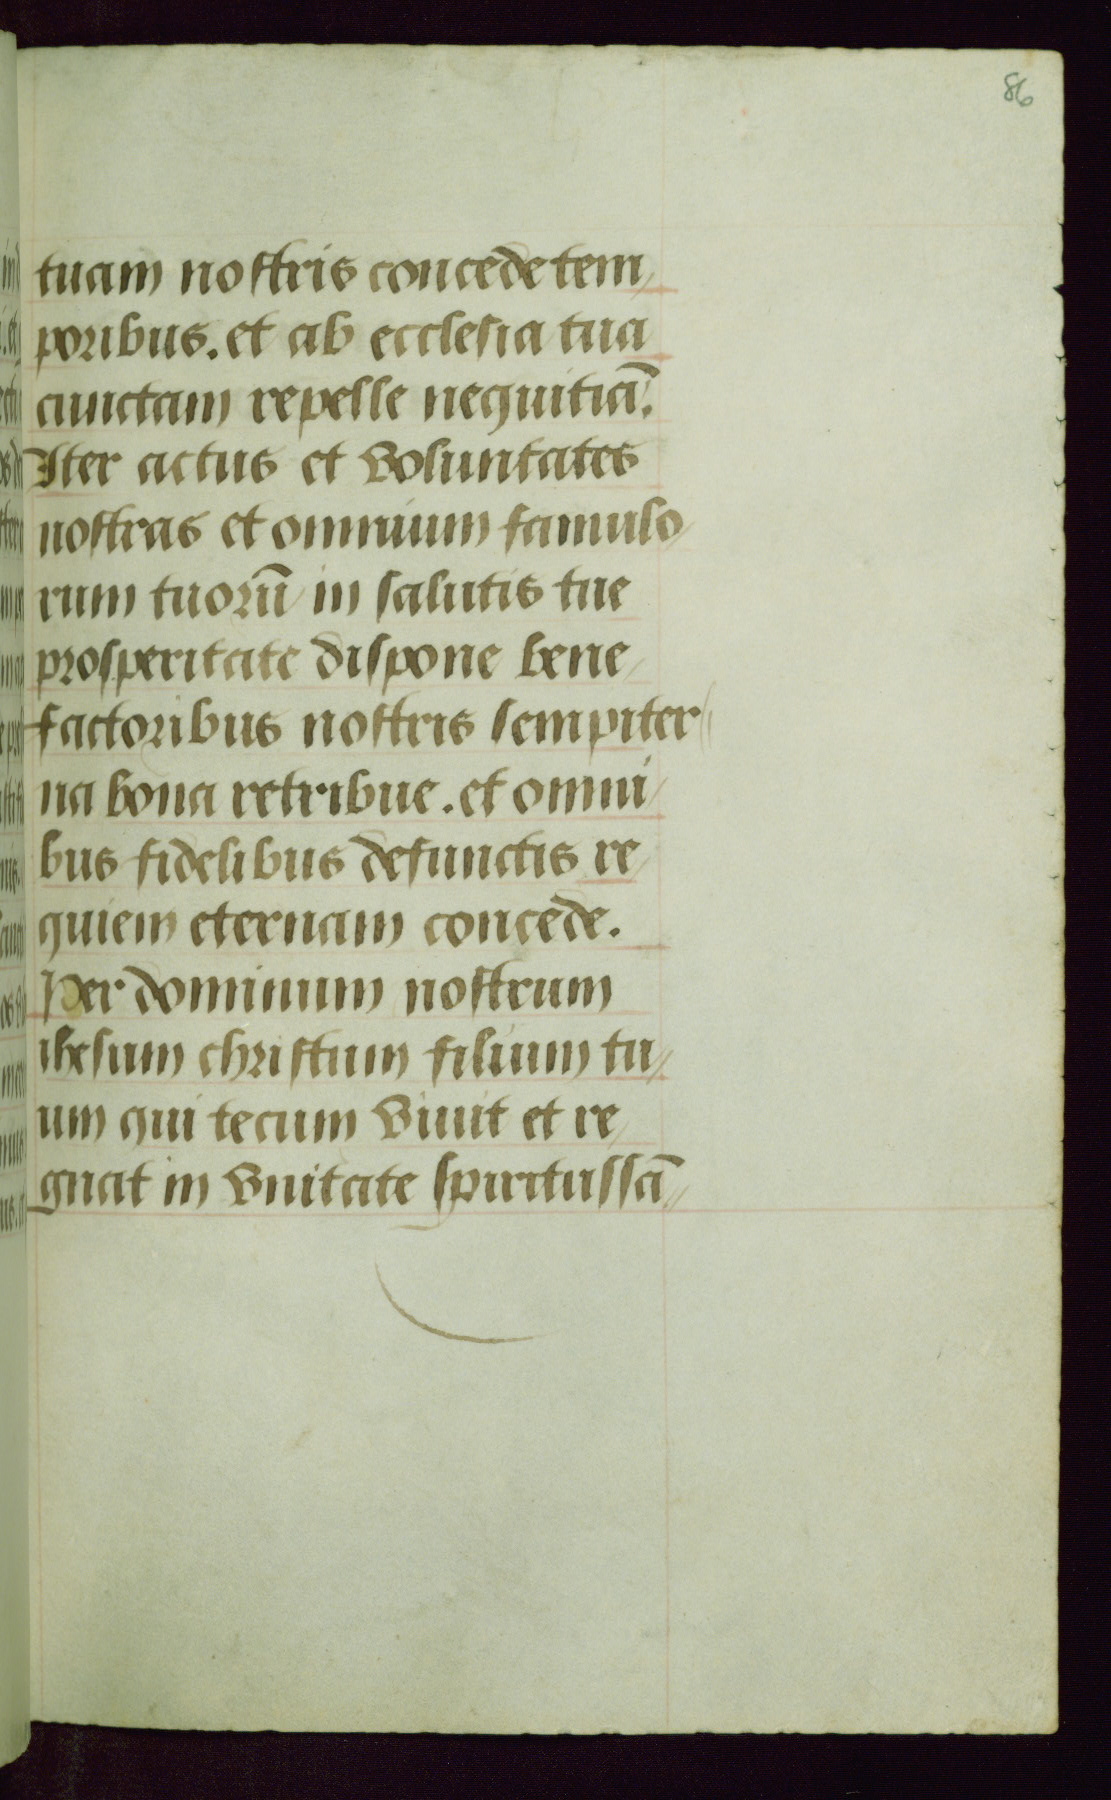 86
tuam nostris concede tem/
poribus. et ab ecclesia tua
cunctam repelle nequitiā.
Iter actus et voluntates
nostras et omnium famulo/
rum tuorū in salutis tue
prosperitate dispone bene/
factoribus nostris sempiter//
na bona retribue. et omni/
bus fidelibus defunctis re/
quiem eternam concede.
Per dominum nostrum
ihesum christum filium tu/
um qui tecum viuit et re/
gnat in vnitate spiritus sā//